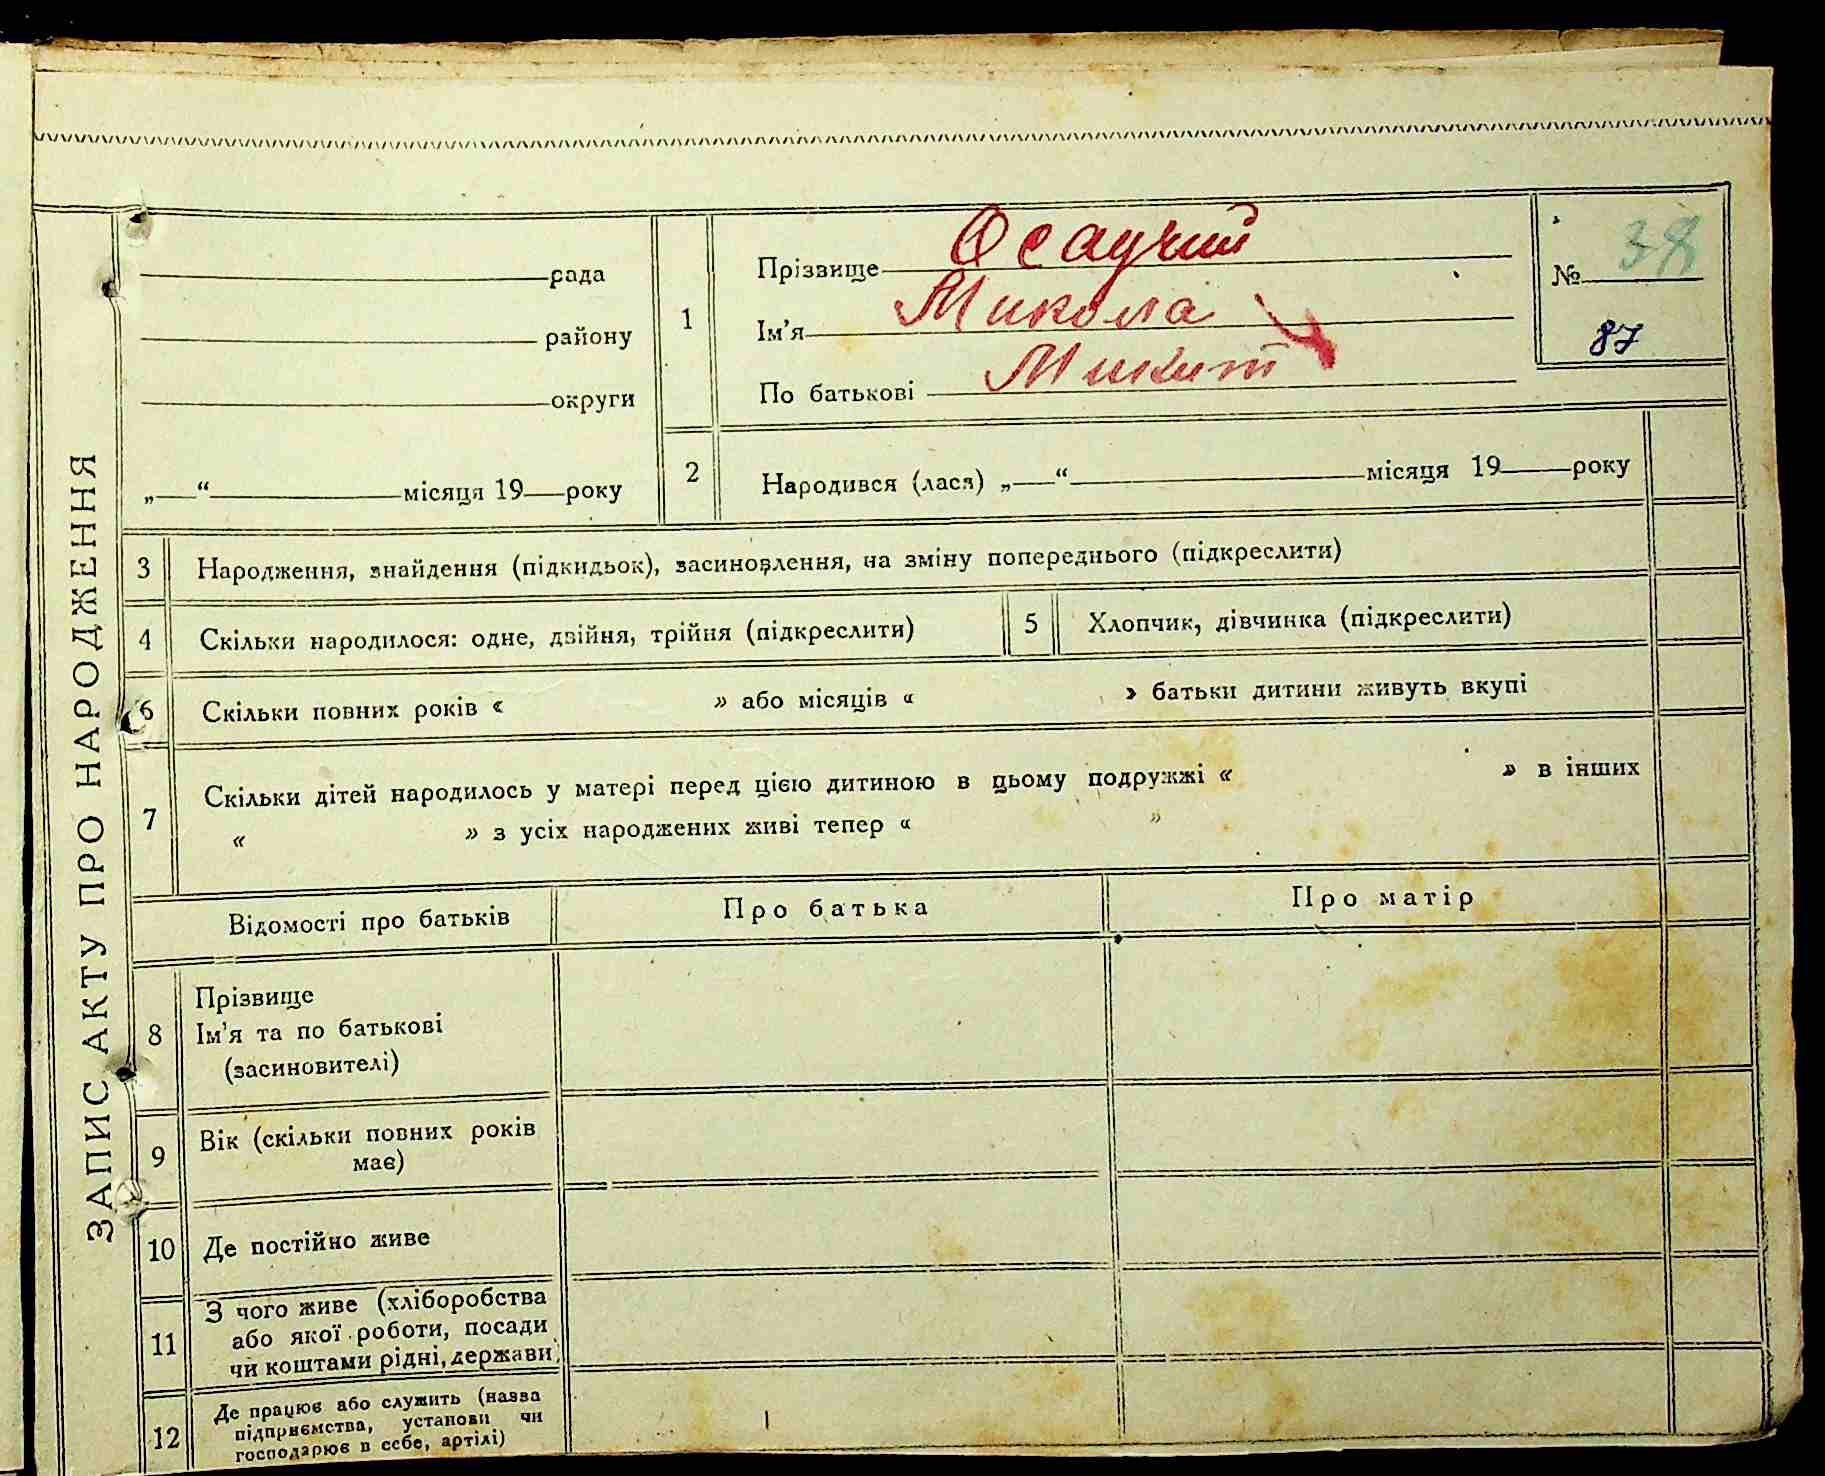 ЗАПИС АКТУ ПРО НАРОДЖЕННЯ
рада
району
округи
„ “ місяця 19 року
1
Прізвище Осадчий
Ім'я Микола
По батькові Микит
№ 38
87
2 Народився (лася) „ “ місяця 19 року
3 Народження, знайдення (підкидьок), засиновлення, на зміну попереднього (підкреслити)
4 Скільки народилося: одне, двійня, трійня (підкреслити) 5 Хлопчик, дівчинка (підкреслити)
6 Скільки повних років « » або місяців « » батьки дитини живуть вкупі
7 Скільки дітей народилось у матері перед цією дитиною в цьому подружжі « » в інших
« » з усіх народжених живі тепер « »
Відомості про батьків Про батька Про матір
8 Прізвище
Ім'я та по батькові
(засиновителі)
9 Вік (скільки повних років
має)
10 Де постійно живе
11 З чого живе (хліборобства
або якої роботи, посади
чи коштами рідні, держави
12 Де працює або служить (назва
підприємства, установи чи
господарює в себе, артілі)